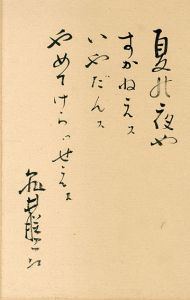 夏の夜や
すかねえヌ
いやだんヌ
やめてけらいせえヌ